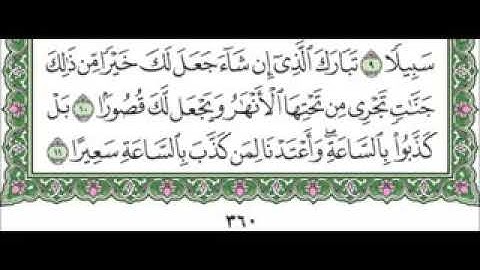 سَبِيلًا ٩ تَبَارَكَ ٱلَّذِىٓ إِن شَآءَ جَعَلَ لَكَ خَيْرًا مِّن ذَٰلِكَ
جَنَّٰتٍ تَجْرِى مِن تَحْتِهَا ٱلْأَنْهَٰرُ وَيَجْعَل لَّكَ قُصُورًا ١٠ بَلْ
كَذَّبُوا۟ بِٱلسَّاعَةِ ۖ وَأَعْتَدْنَا لِمَن كَذَّبَ بِٱلسَّاعَةِ سَعِيرًا ١١
٣٦٠